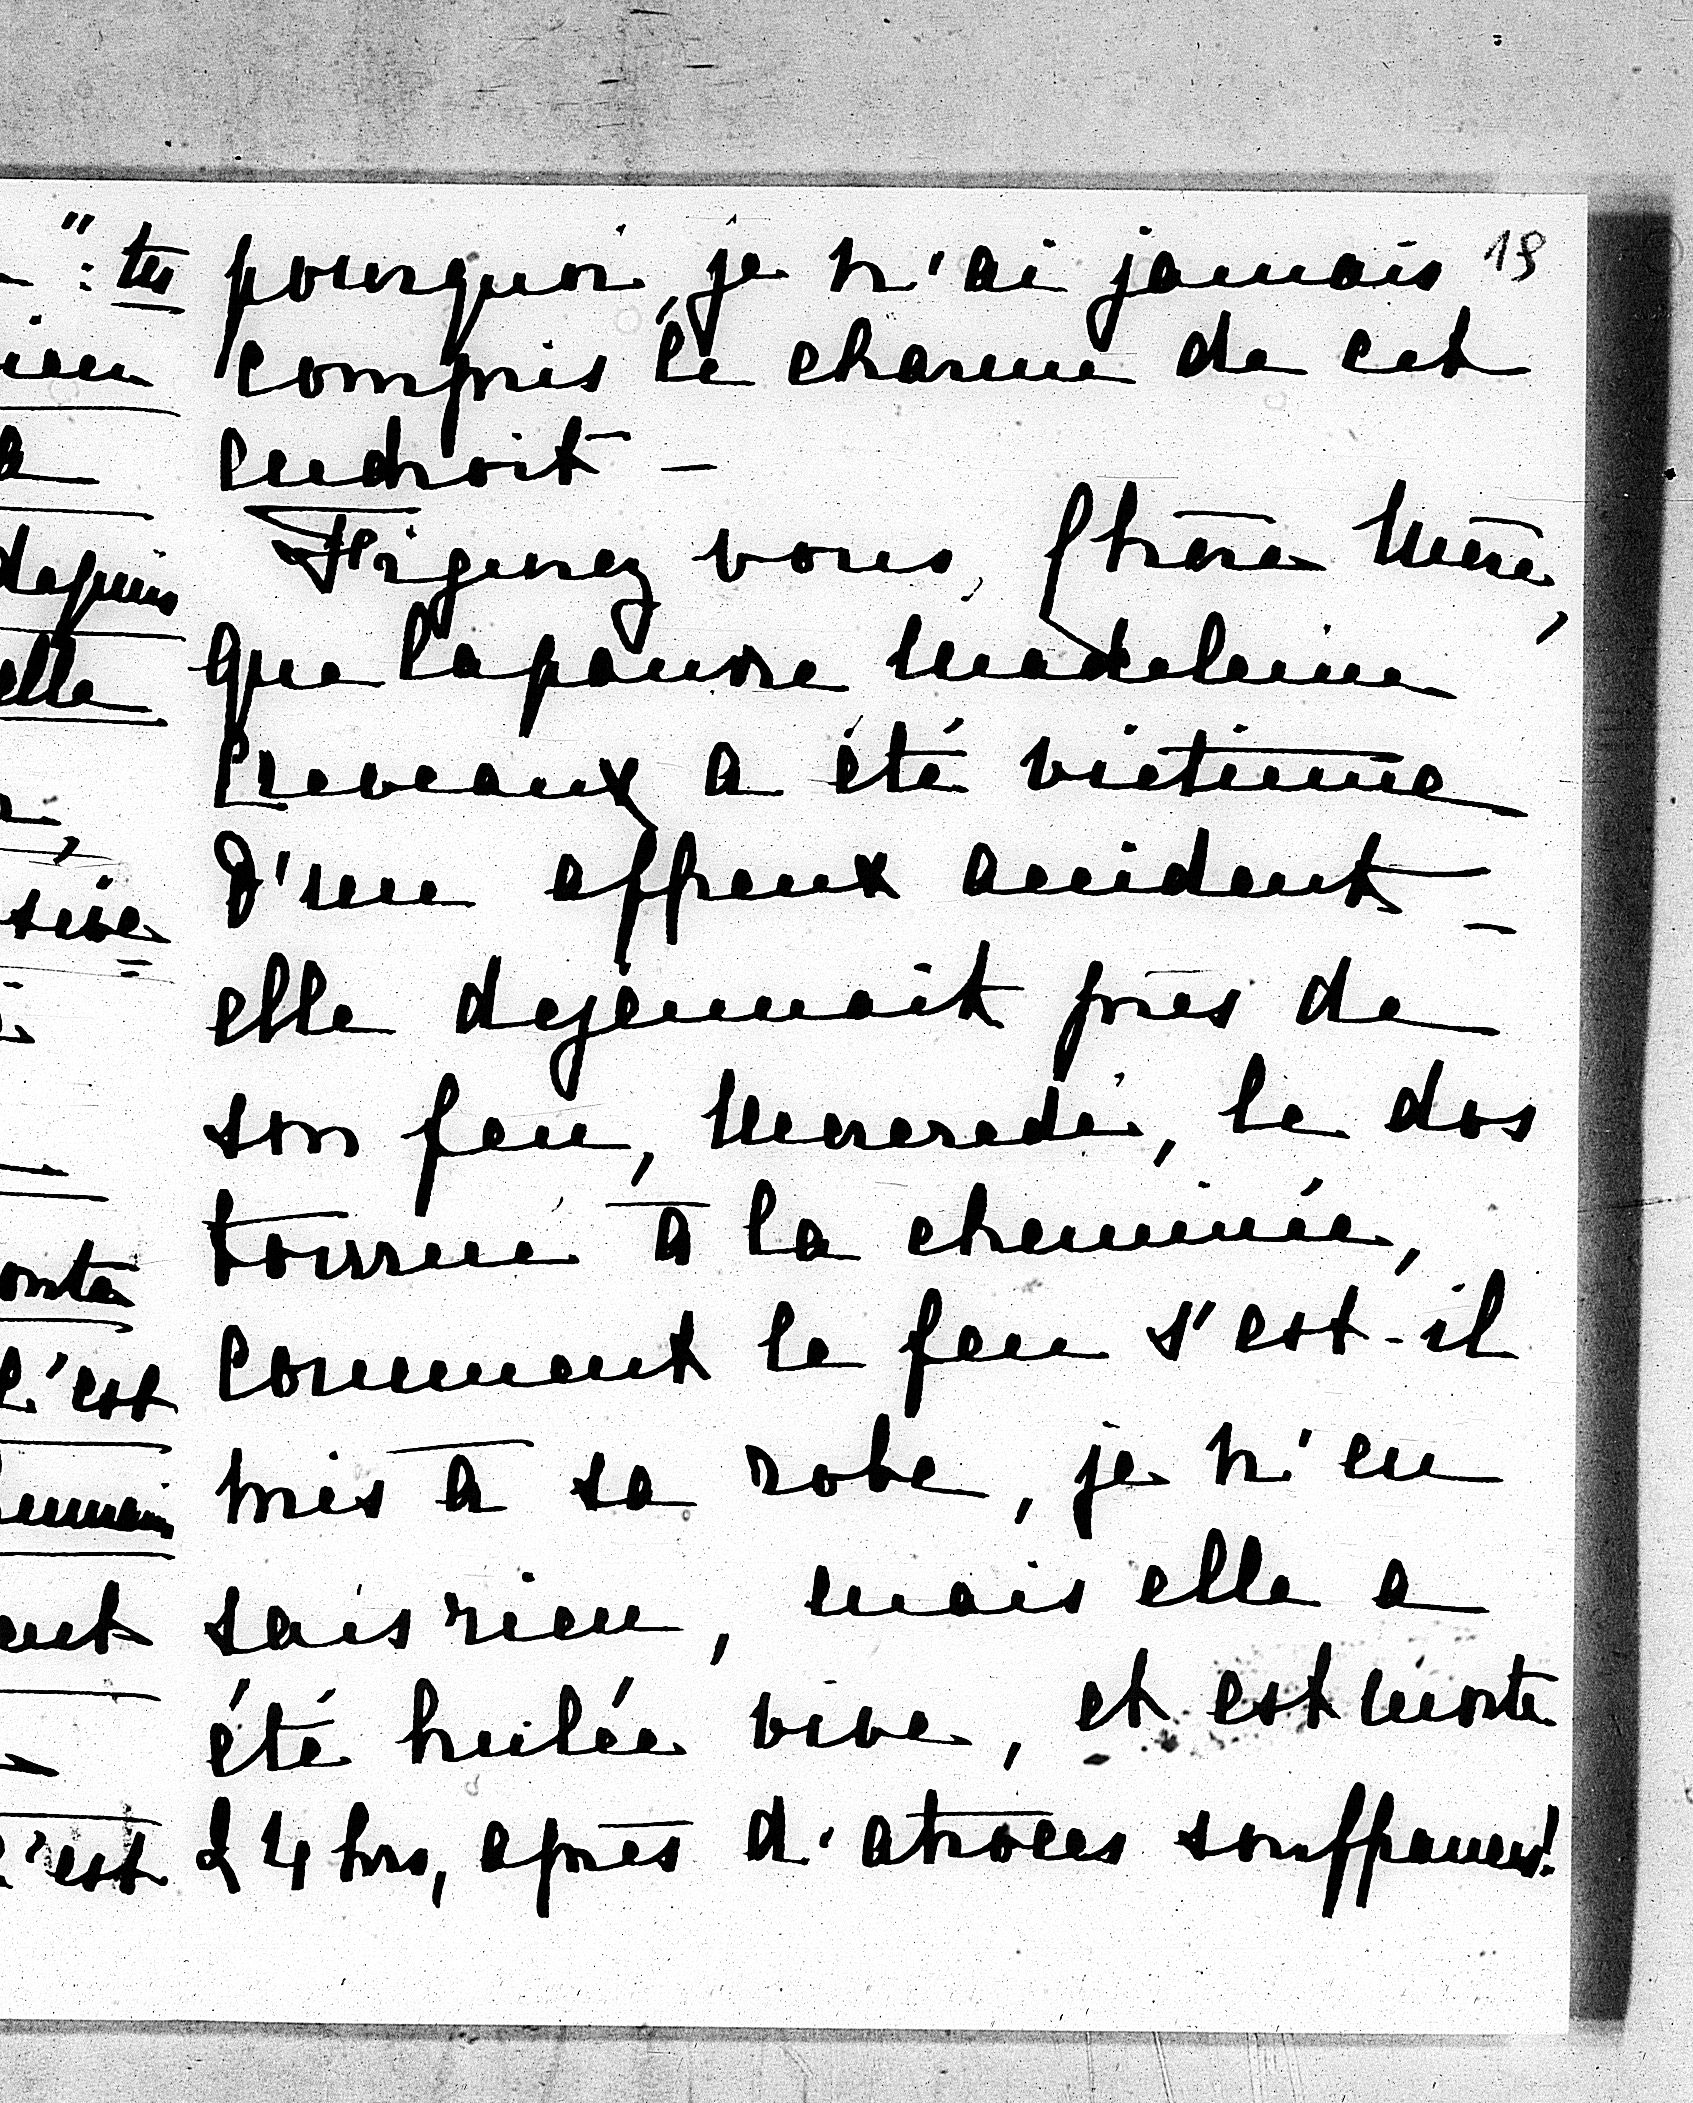 pourquoi, je n'ai jamais 19
compris le charme de cet
endroit —
Figurez vous, chère Mère,
que la pauvre Madeleine
Creveaux a été victime
d'un affreux accident —
elle dejeunait près de
son feu, Mercredi, le dos
tourné à la cheminée,
comment le feu s'est-il
mis à sa robe, je n'en
sais rien, mais elle a
été brulée vive, et est morte
24 hrs, après d'atroces souffrances!
": tes
depuis
elle
l'est
c'est